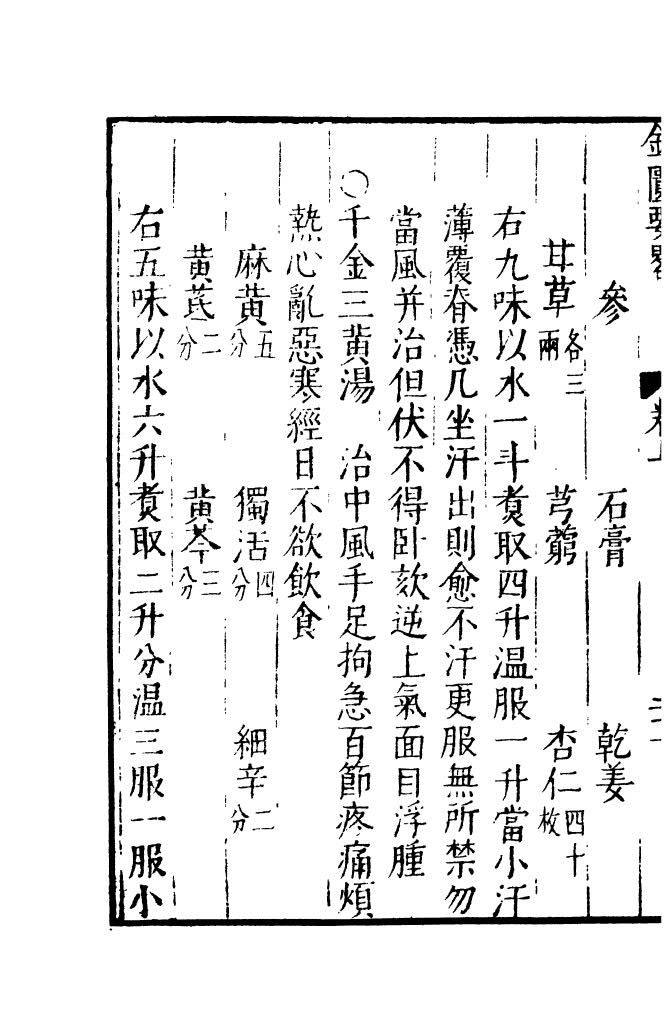 金匱要略 卷上
參 石膏 乾姜
甘草各三兩 芎藭 杏仁四十枚
右九味以水一斗煑取四升温服一升當小汗
薄覆脊憑几坐汗出則愈不汗更服無所禁勿
當風并治但伏不得卧欬逆上氣面目浮腫
○千金三黄湯 治中風手足拘急百節疼痛煩
熱心亂惡寒經日不欲飲食
麻黄五分 獨活四分 細辛二分
黄芪二分 黄芩三分
右五味以水六升煑取二升分温三服一服小